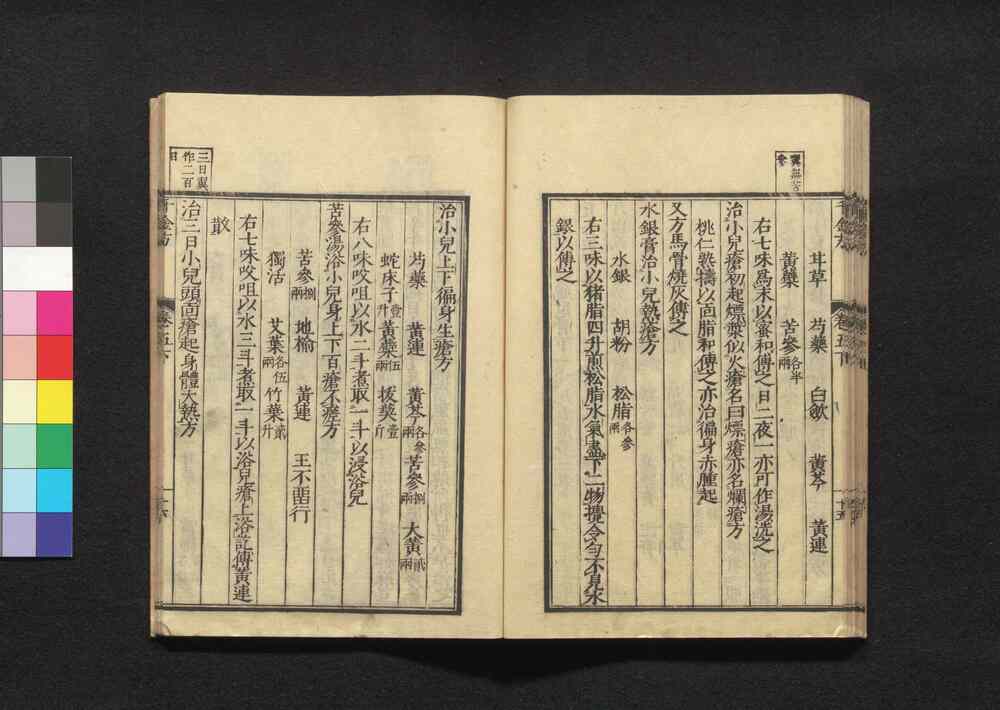 甘草　芍藥　白斂　黃芩　黃連
黃蘗　苦參各半兩
右七味爲末以蜜和傅之日二夜一亦可作湯洗之
治小兒瘡初起熛漿似火瘡名曰熛瘡亦名爛瘡方
桃仁熟擣以面脂和傅之亦治徧身赤腫起
又方馬骨燒灰傅之
水銀膏治小兒熱瘡方
水銀　胡粉　松脂各參兩
右三味以猪脂四升煎松脂水氣盡下二物攪令勻不見水
銀以傅之
治小兒上下徧身生瘡方
芍藥　黃連　黃芩各參兩　苦參捌兩　大黃貳兩
蛇床子壹升　黃蘗伍兩　拔葜壹斤
右八味㕮咀以水二斗煮取一斗以浸浴兒
苦參湯浴小兒身上下百瘡不瘥方
苦參捌兩　地榆　黃連　王不留行
獨活　艾葉各伍兩　竹葉貳升
右七味㕮咀以水三斗煮取一斗以浴兒瘡上浴訖傅黃連
散
三日翼
作二百
日
治三日小兒頭面瘡起身體大熱方
千金方　卷五下　十六